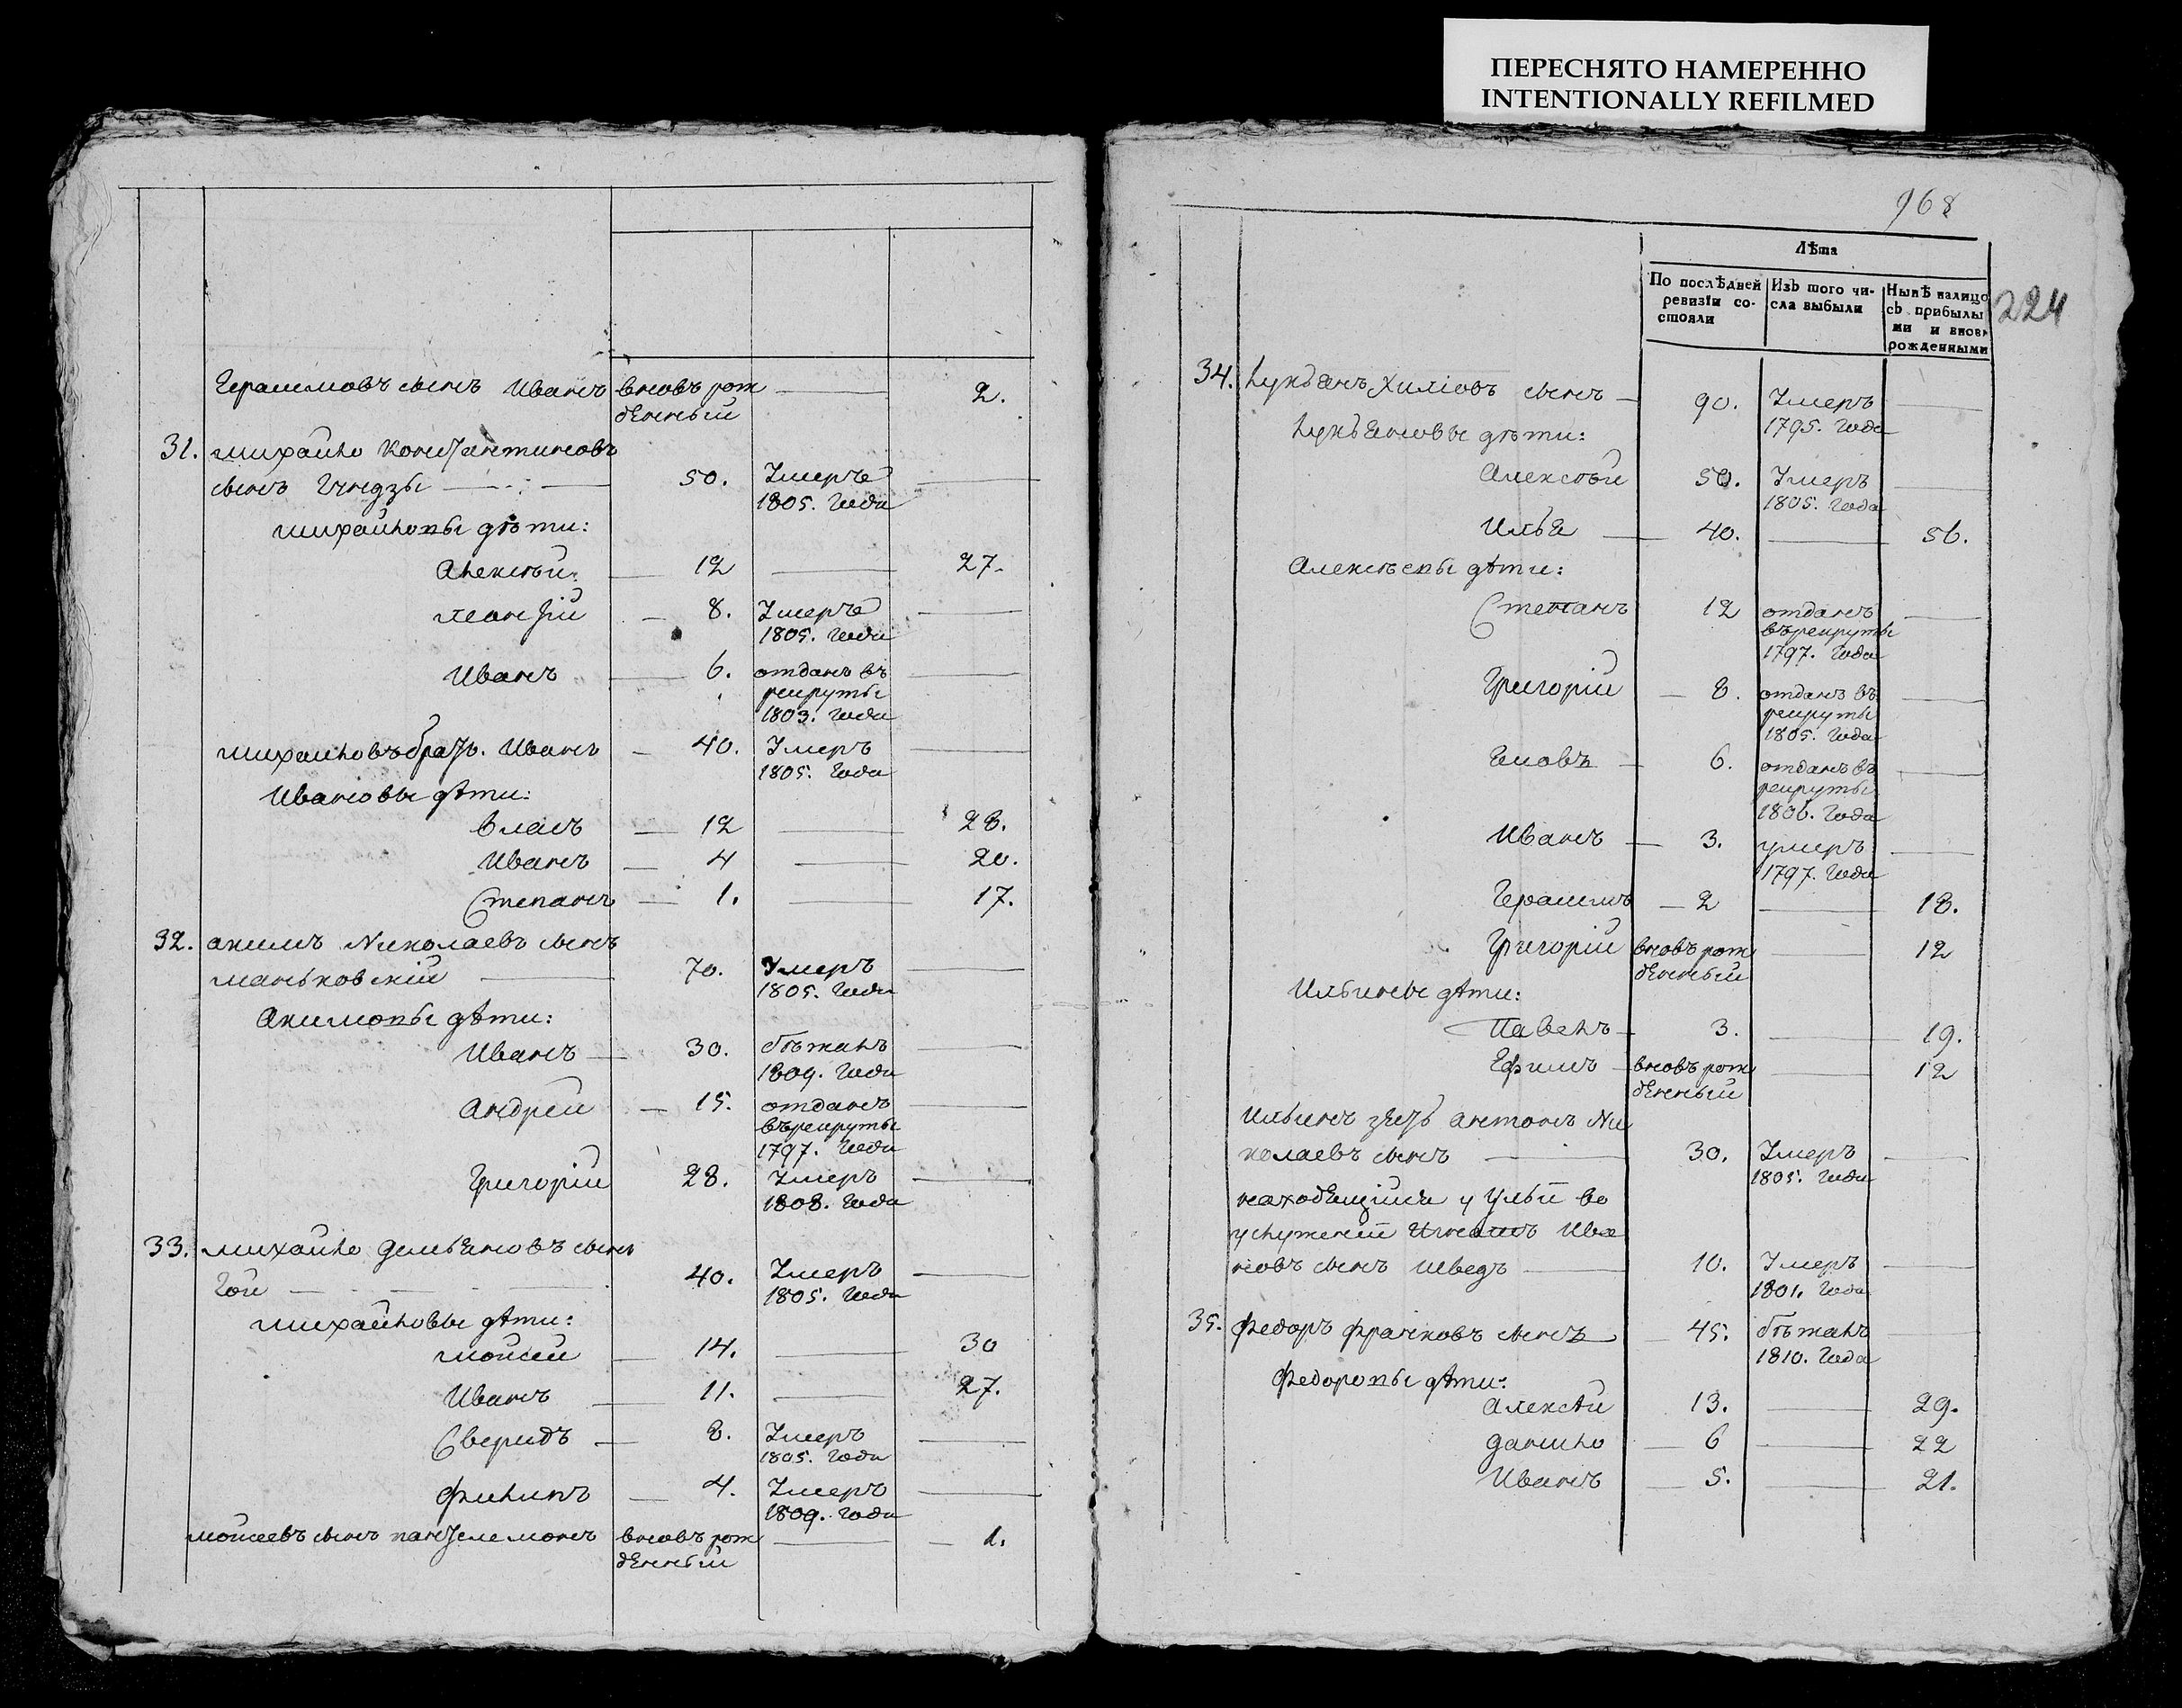 ПЕРЕСНЯТО НАМЕРЕННО
INTENTIONALLY REFILMED
Герасимовъ сынъ Иванъ вновь рож 2.
денный
31. михайло Константиновъ
сынъ 50. Умеръ
1805. Года
михайловы дѣти:
Алексѣй 12 27.
Леонтий 8. Умеръ
1805. Года
Иванъ 6. отданъ въ
рекруты
1803. Года
михайловъ братъ. Иванъ 40. Умеръ
1805. Года
Ивановы дѣти:
Власъ 12 28.
Иванъ 4 20.
Степанъ 1. 17.
32. акимъ Николаевъ сынъ
маньковскій 70. Умеръ
1805. Года
Акимовы дѣти:
Иванъ 30. бѣжалъ
1809. Года
Андрей 15. отданъ
въ рекруты
1797. Года
Григорій 28. Умеръ
1808. Года
33. михайло демьяновъ сынъ
Гои 40. Умеръ
1805. Года
михайловы дѣти:
моисей 14. 30
Иванъ 11. 27.
Свиридъ 8. Умеръ
1805. Года
Филипъ 4. Умеръ
1809. Года
моисеевъ сынъ пантелемонъ вновь рож 1.
денный
968
224
Лѣта
По послѣдней ревизіи состояли
Изъ того числа выбыли
Нынѣ налицо съ прибылыми и вновь рожденными
34. Лукьянъ сынъ 90. Умеръ
1795. Года
Лукьяновы дѣти:
Алексѣй 50. Умеръ
1805. Года
Илья 40. 56.
Алексѣевы дѣти:
Степанъ 12 отданъ
въ рекруты
1797. Года
Григорій 8. отданъ въ
рекруты
1805. Года
6. отданъ въ
рекруты
1806. Года
Иванъ 3. умеръ
1797. Года
Герасимъ 2 18.
Григорій вновь рож 12
денный
Ильины дѣти:
Павелъ 3. 19.
Ефимъ вновь рож 12
денный
Ильинъ зять антонъ Ни
колаевъ сынъ 30. Умеръ
1805. Года
находящійся у Ильи во
услуженіи Ива
новъ сынъ шведъ 10. Умеръ
1801. Года
35. Федоръ Франковъ сынъ 45. бѣжалъ
1810. Года
Федоровы дѣти:
Алексѣй 13. 29.
Данило 6 22
Иванъ 5. 21.